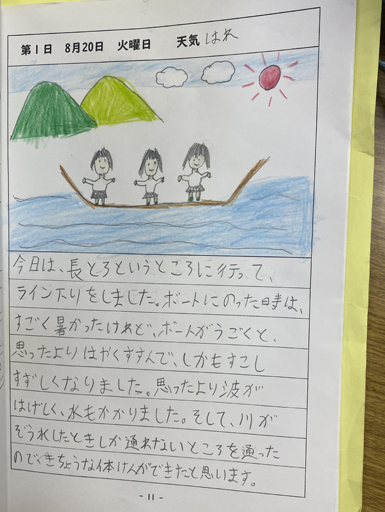 第1日 8月20日 火曜日 天気 はれ
今日は、長とろというところに行って、
ライン下りをしました。ボートにのった時は、
すごく暑かったけれど、ボートがうごくと、
思ったよりはやくすすんで、しかもすこし
すずしくなりました。思ったより波が
はげしく、水もかかりました。そして、川が
ぞう水したときしか通れないところを通った
のできちょうな体けんができたと思います。
- 11 -